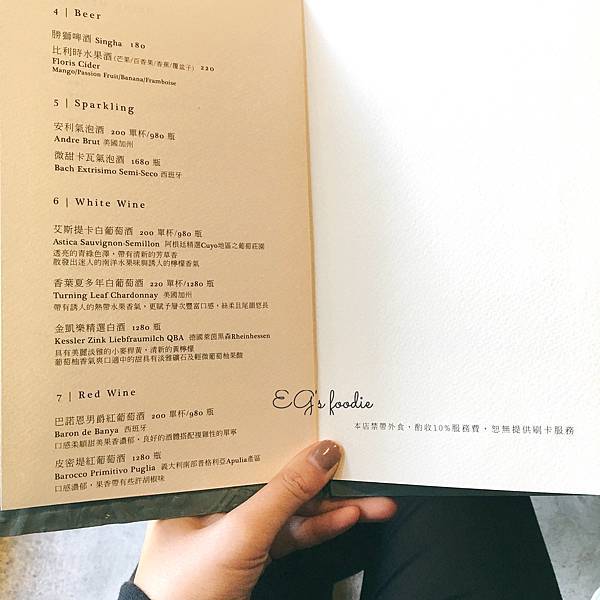 4 | Beer
勝獅啤酒 Singha 180
比利時水果酒 (芒果/百香果/香蕉/覆盆子) 220
Floris Cider
Mango/Passion Fruit/Banana/Framboise
5 | Sparkling
安利氣泡酒 200 單杯/980 瓶
Andre Brut 美國加州
微甜卡瓦氣泡酒 1680 瓶
Bach Extrisimo Semi-Seco 西班牙
6 | White Wine
艾斯提卡白葡萄酒 200 單杯/980 瓶
Astica Sauvignon-Semillon 阿根廷精選Cuyo地區之葡萄莊園
透亮的青綠色澤，帶有清新的芳草香
散發出迷人的南洋水果味與誘人的檸檬香氣
香葉夏多年白葡萄酒 220 單杯/1280 瓶
Turning Leaf Chardonnay 美國加州
帶有誘人的熱帶水果香氣，更賦予層次豐富口感，絲柔且尾韻悠長
金凱樂精選白酒 1280 瓶
Kessler Zink Liebfraumilch QBA 德國萊茵黑森Rheinhessen
具有美麗淡雅的小麥桿黃，清新的黃檸檬
葡萄柚香氣爽口適中的甜具有淡雅礦石及輕微葡萄柚果酸
7 | Red Wine
巴諾恩男爵紅葡萄酒 200 單杯/980 瓶
Baron de Banya 西班牙
口感柔順甜美果香濃郁，良好的酒體搭配複雜性的單寧
皮密堤紅葡萄酒 1280 瓶
Barocco Primitivo Puglia 義大利南部普格利亞Apulia產區
口感濃郁，果香帶有些許胡椒味
EG's foodie
本店禁帶外食，酌收10%服務費，恕無提供刷卡服務